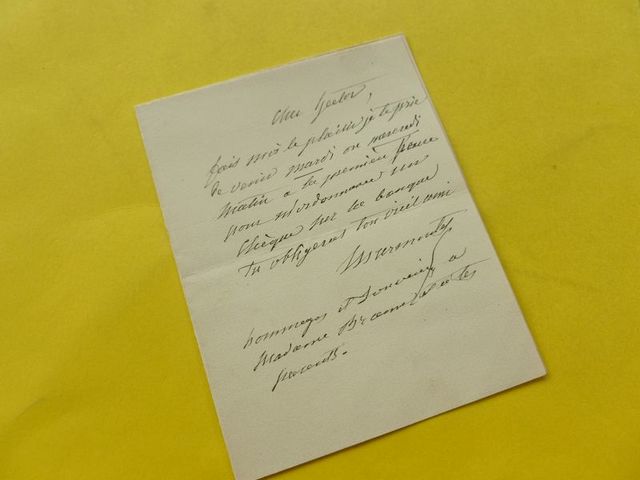 Cher Hector,
fais moi le plaisir je te prie
de venir mardi ou mercredi
matin à la première heure
pour m'ordonnancer un
chèque sur la banque
tu obligeras ton vieil ami
Marmontel
hommages et souvenirs a
Madame et a tes
parents.